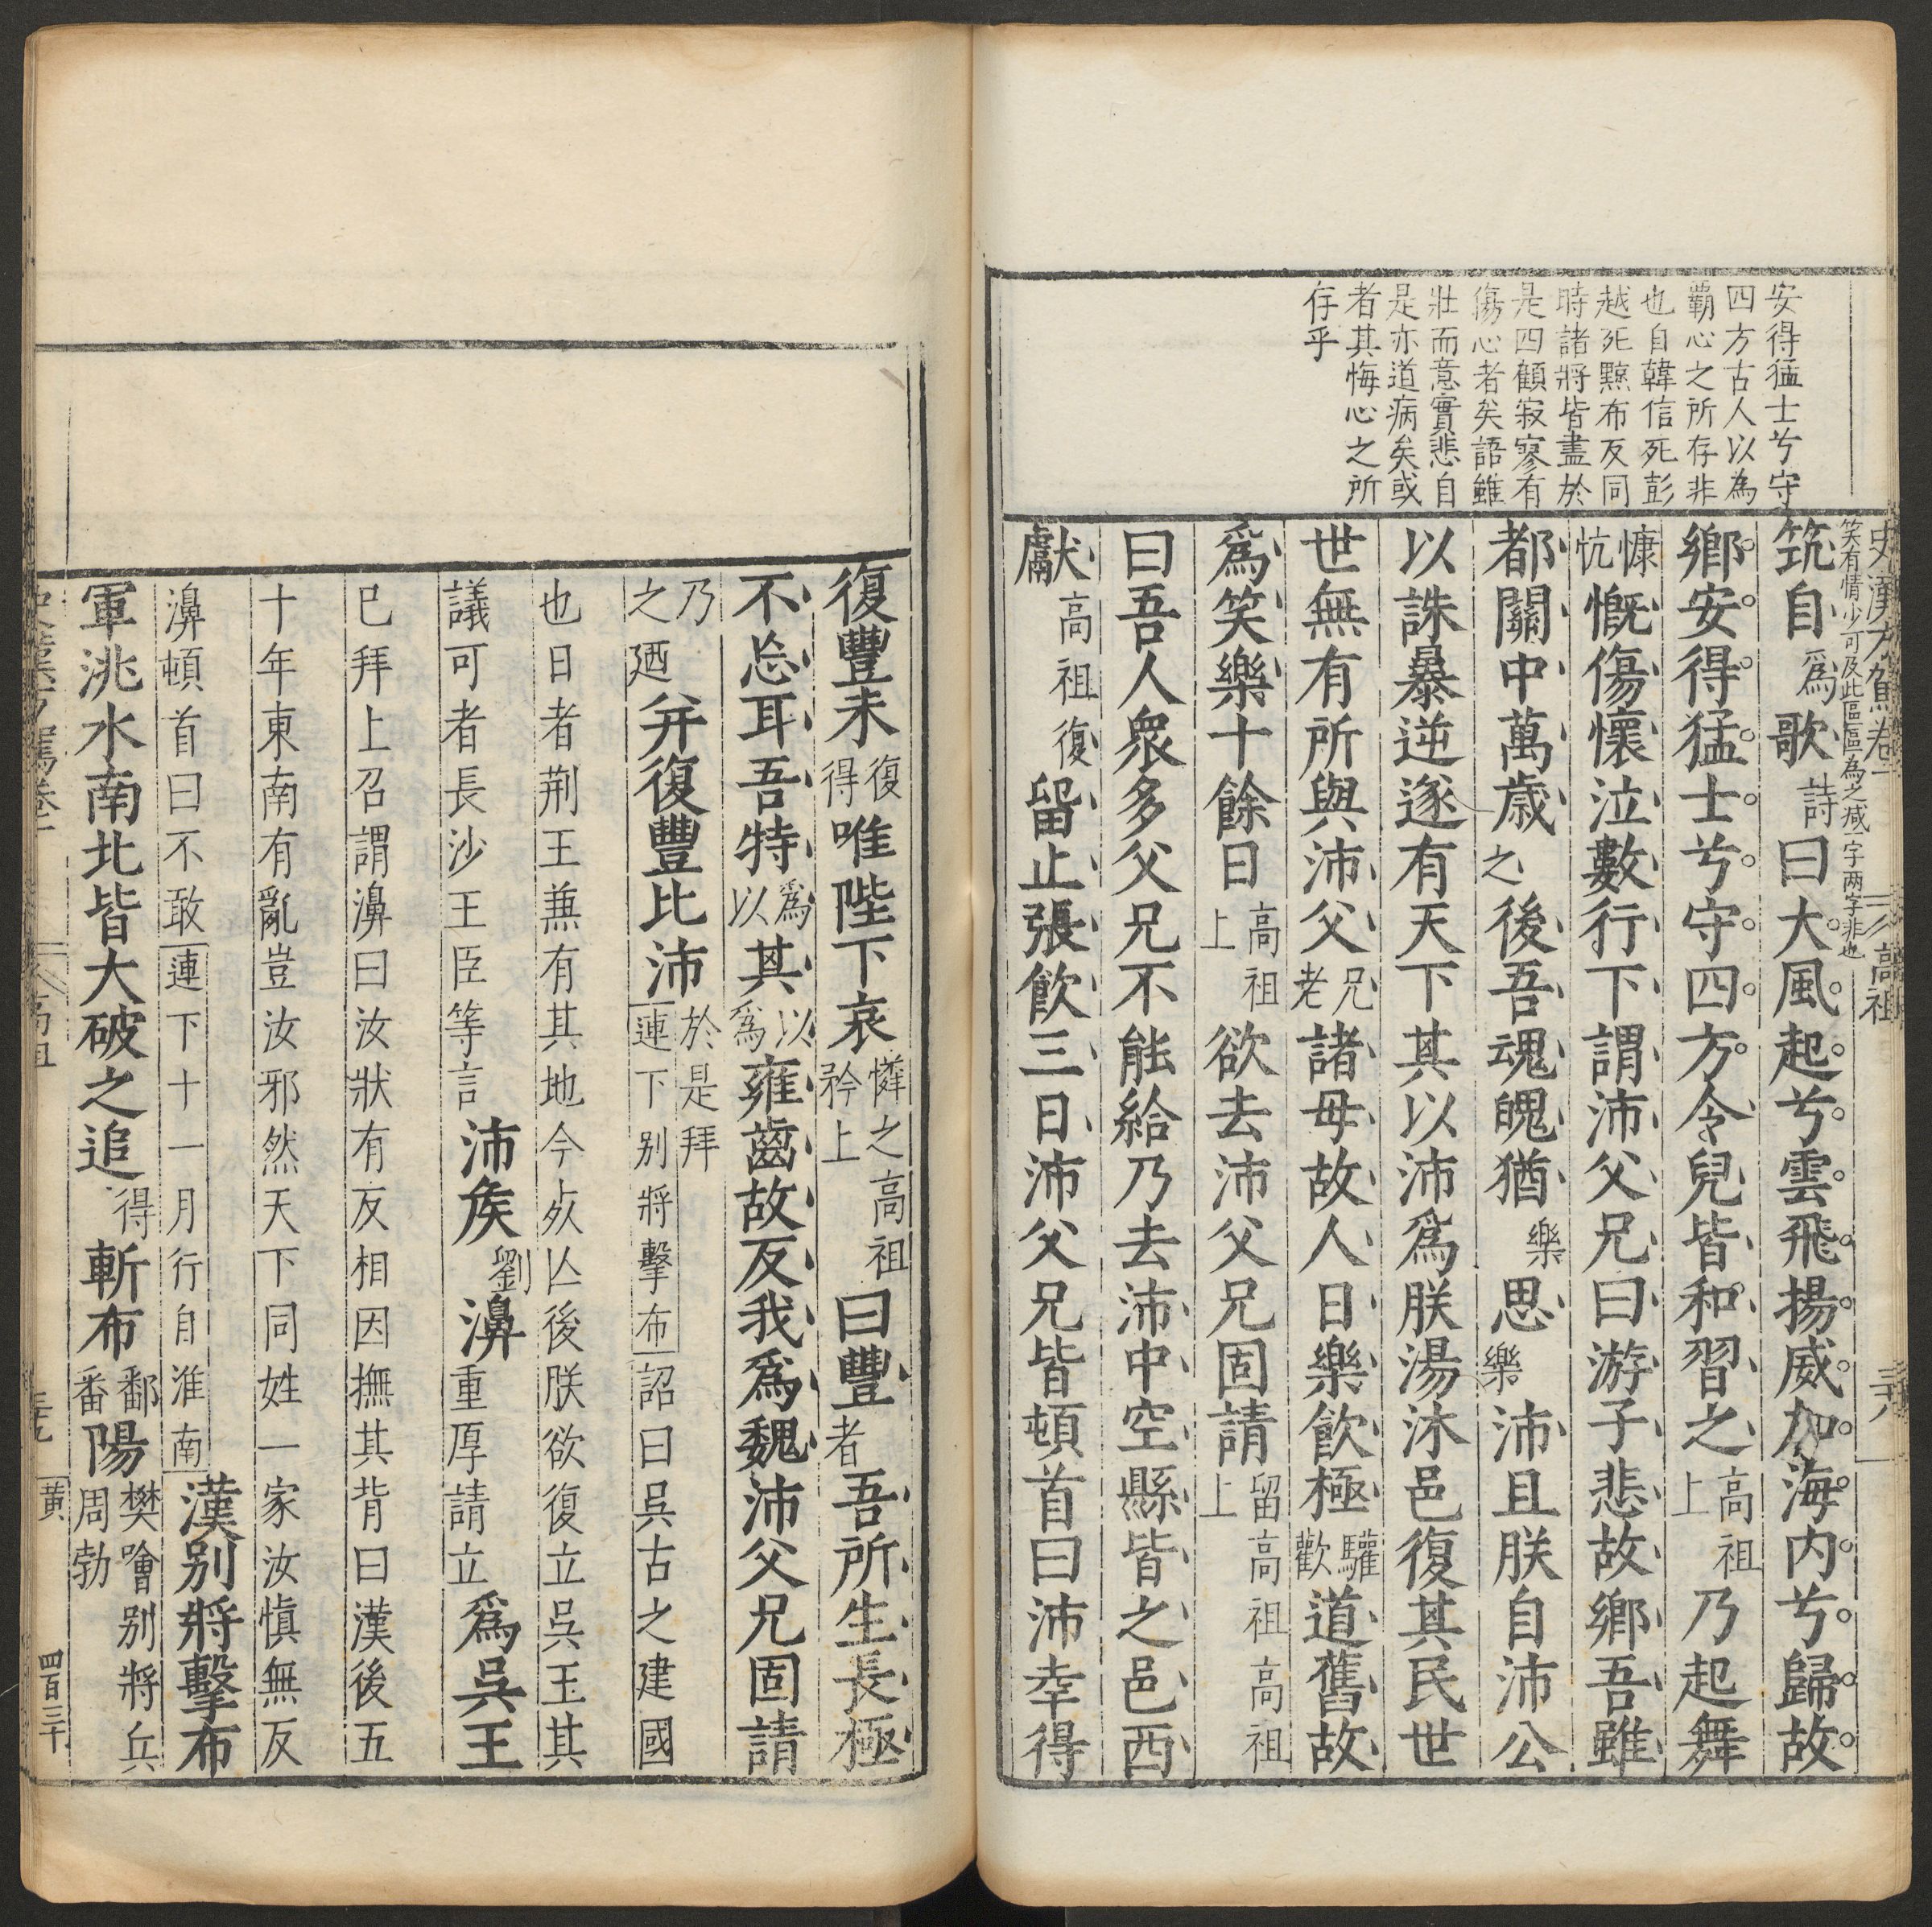 安得猛士兮守
四方古人以為
霸心之所存非
也自韓信死彭
越死黥布反同
時諸將皆盡於
是四顧寂寥有
傷心者矣語雖
壯而意實悲自
是亦道病矣或
者其悔心之所
存乎
笑有情少可及此區區為之減一字兩字非也
高祖
三十八
筑自為歌詩曰大風起兮雲飛揚威加海內兮歸故
鄉安得猛士兮守四方令兒皆和習之高祖上乃起舞
慷忼慨傷懷泣數行下謂沛父兄曰游子悲故鄉吾雖
都關中萬歲之後吾魂魄猶樂思樂沛且朕自沛公
以誅暴逆遂有天下其以沛為朕湯沐邑復其民世
世無有所與沛父兄老諸母故人日樂飲極驩歡道舊故
為笑樂十餘日高祖上欲去沛父兄固請留高祖上高祖
曰吾人眾多父兄不能給乃去沛中空縣皆之邑西
獻高祖復留止張飲三日沛父兄皆頓首曰沛幸得
復豐未復得唯陛下哀憐之矜上高祖曰豐者吾所生長極
不忘耳吾特為以其以為雍齒故反我為魏沛父兄固請
乃之廼并復豐比沛於是拜連下別將擊布詔曰吳古之建國
也日者荊王兼有其地今死亾後朕欲復立吳王其
議可者長沙王臣等言沛矦劉濞重厚請立為吳王
已拜上召謂濞曰汝狀有反相因撫其背曰漢後五
十年東南有亂豈汝邪然天下同姓一家汝慎無反
濞頓首曰不敢連下十一月行自淮南漢別將擊布
軍洮水南北皆大破之追得斬布鄱番陽樊噲別將兵周勃
高祖
三十九
黃
四百三十